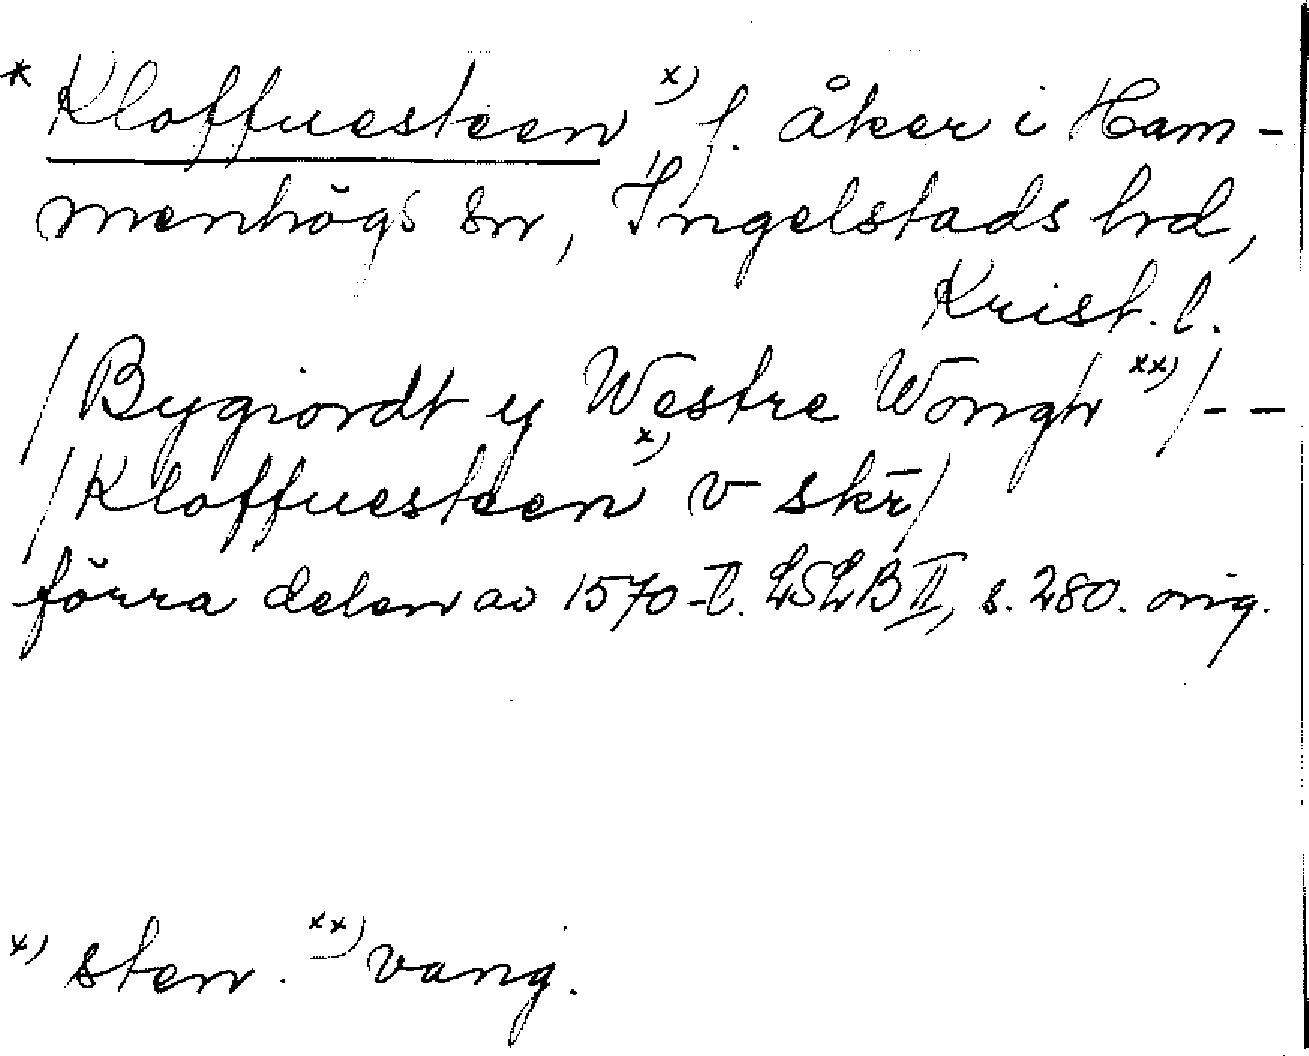 * Kloffuesteen x) f. åker i Ham-
menhögs sn, Ingelstads hd,
Krist. l.
/Bygiordt y Westre Wongh xx)/--
/Kloffuesteen x) v skr̄/
förra delen av 1570-t. LSLB II, s. 280. orig.
x) sten. xx) vang.